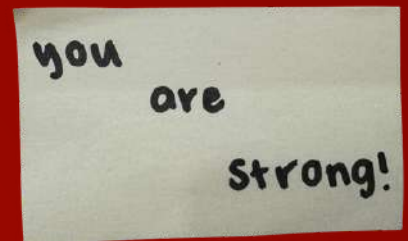 you
are
strong!